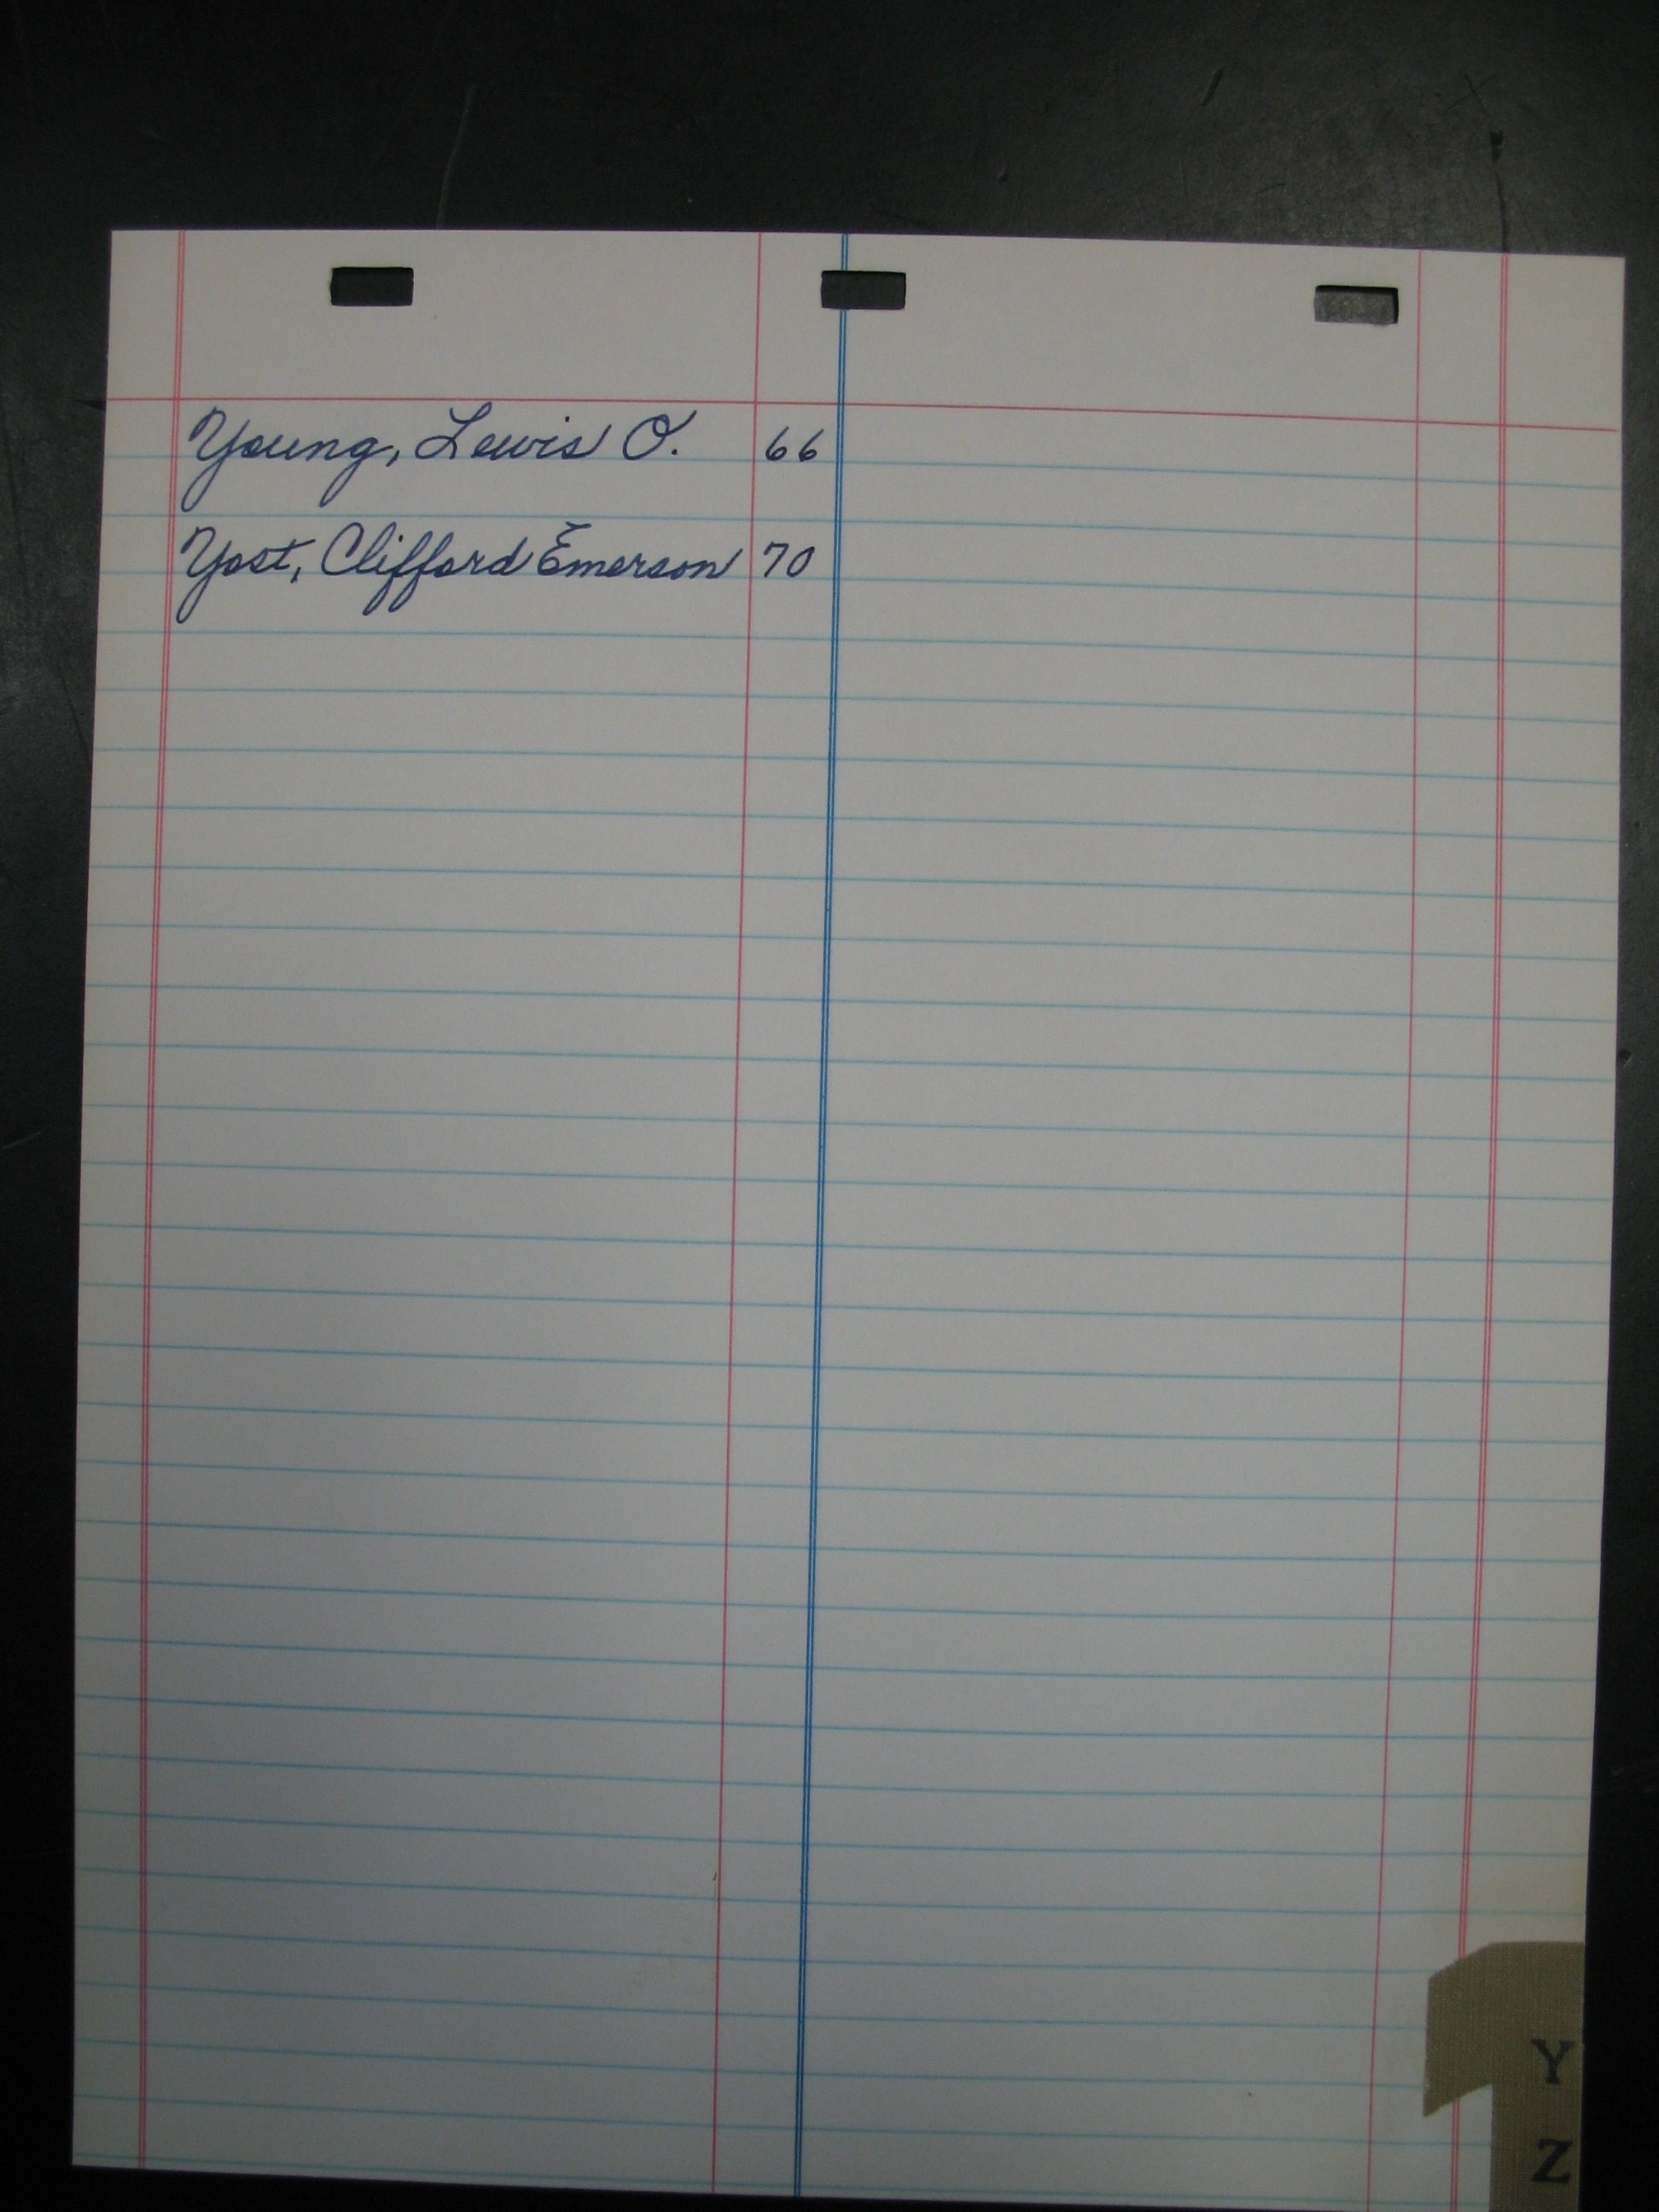 Young, Lewis O. 66
Yost, Clifford Emerson 70
Y
Z